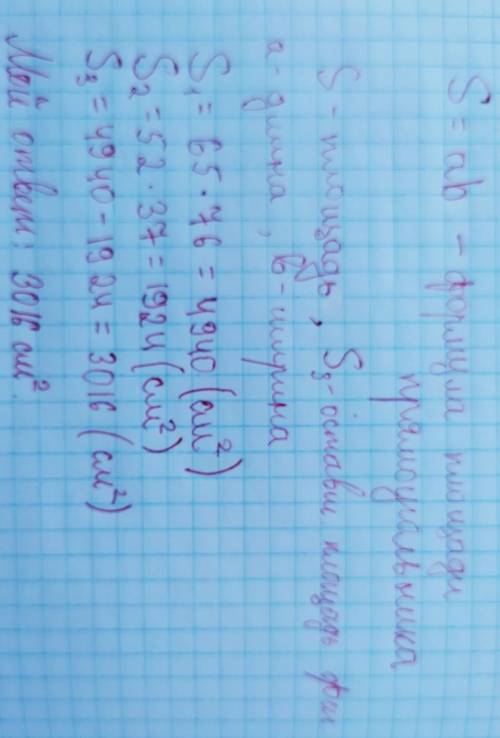 S = ab - формула площади
прямоугольника
S - площадь, S₃ - оставш площадь фиг
a - длина, b - ширина
S₁ = 65 · 76 = 4940 (см²)
S₂ = 52 · 37 = 1924 (см²)
S₃ = 4940 - 1924 = 3016 (см²)
Мой ответ: 3016 см².